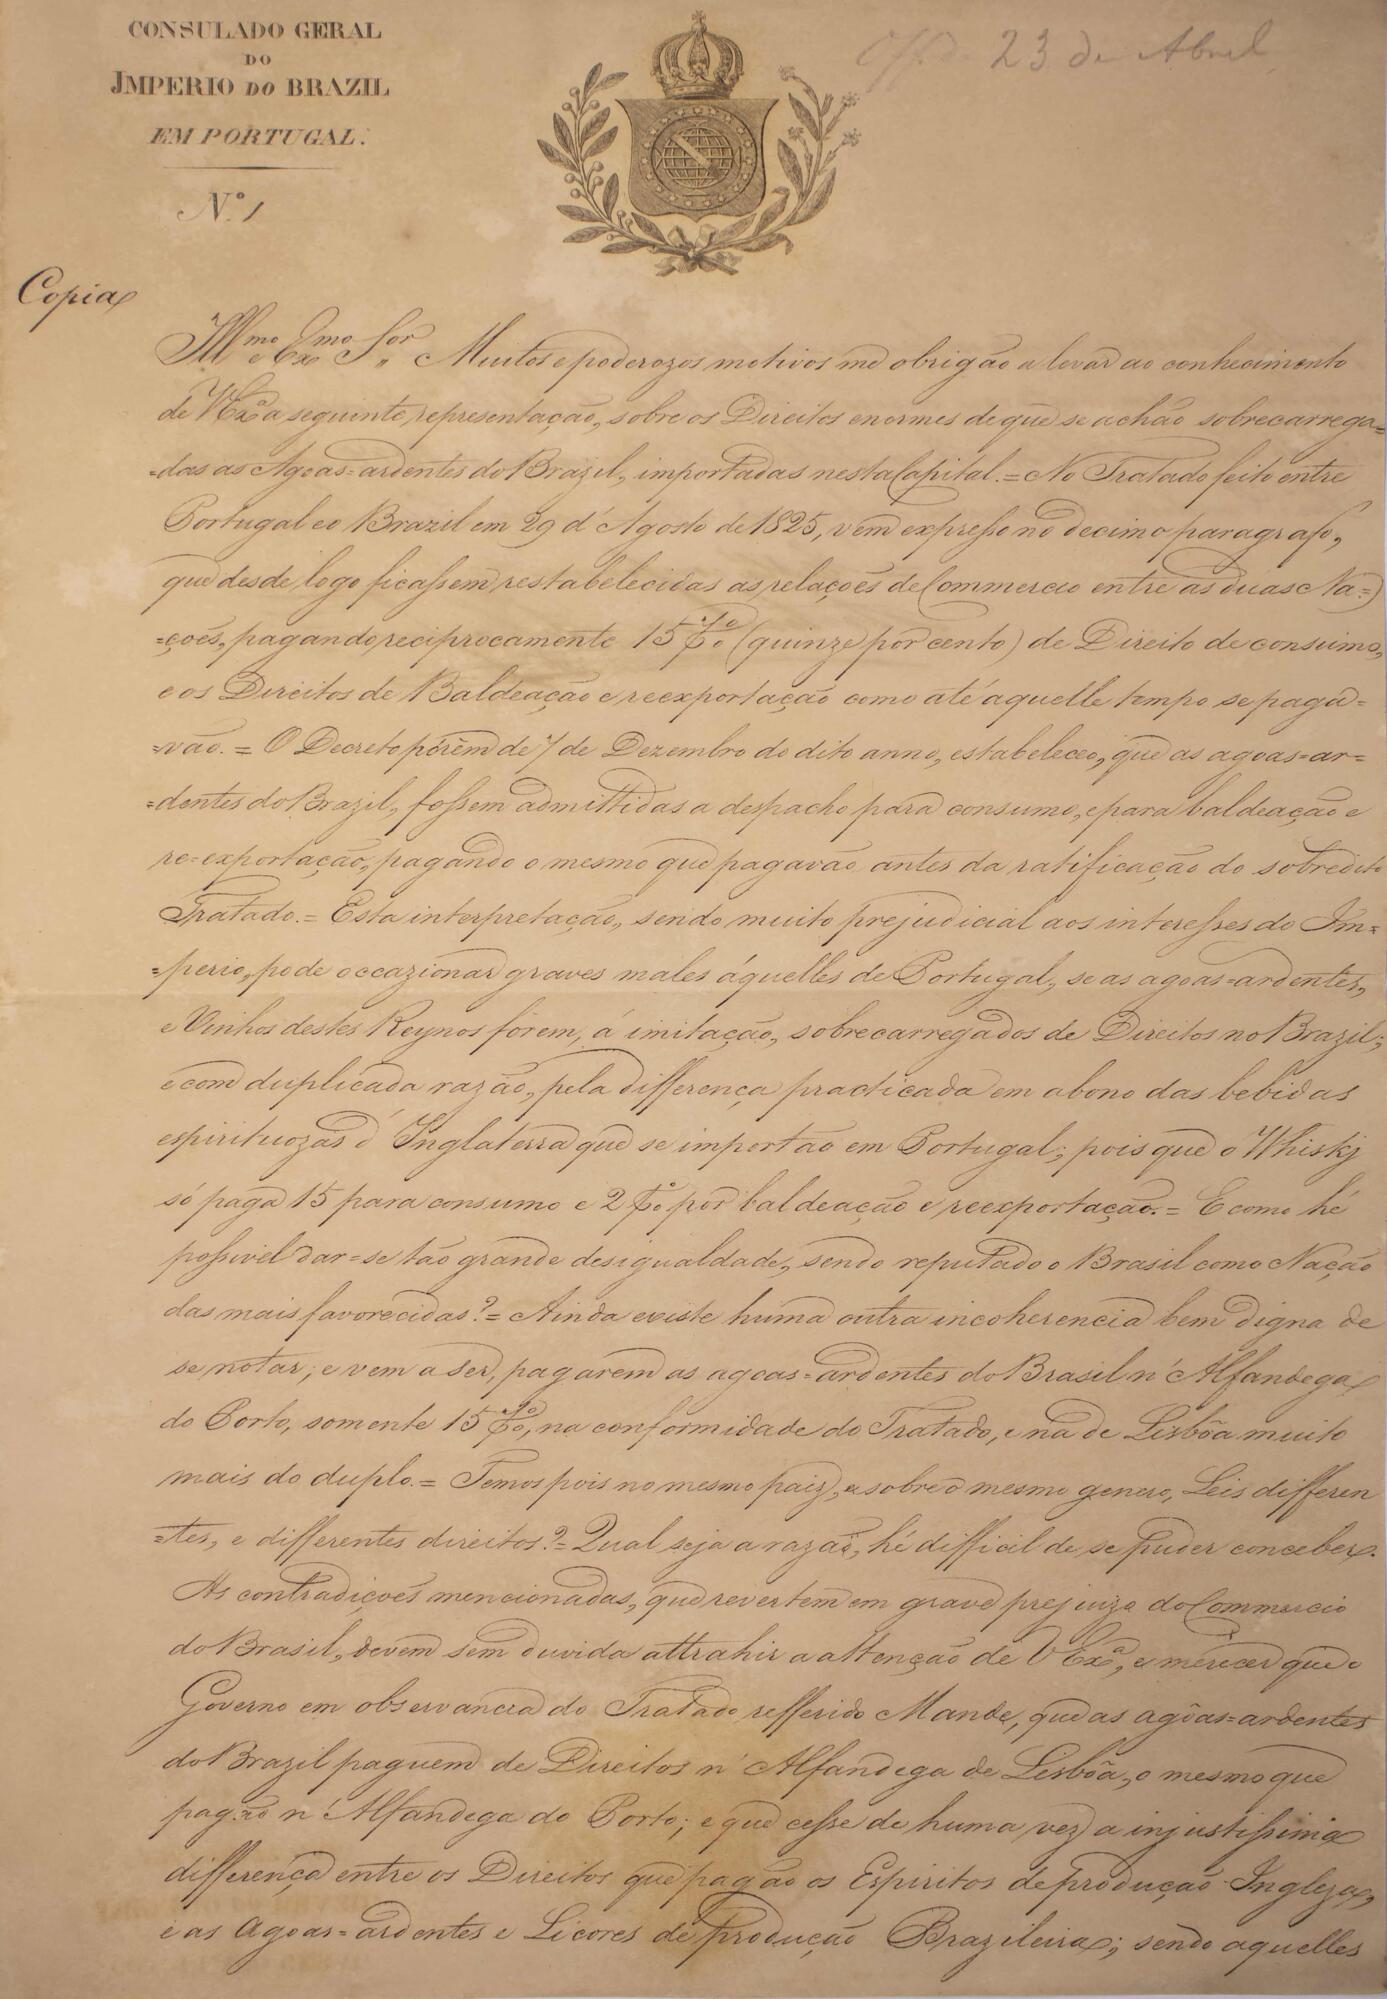 CONSULADO GERAL
DO
IMPERIO DO BRAZIL
EM PORTUGAL.
N.º 1
Off. de 23 de Abril
Copia
Illmo e Exmo Sor „ Muitos e poderozos motivos me obrigão a levar ao conhecimento
de VExª a seguinte representação, sobre os Direitos enormes de que se achão sobrecarrega=
=das as Agoas=ardentes do Brazil, importadas nesta Capital. = No Tratado feito entre
Portugal e o Brazil em 29 d'Agosto de 1825, vem expresso no decimo paragrafo,
que desde logo ficassem restabelecidas as relações de Commercio entre as duas Na=
=ções, pagando reciprocamente 15 p% (quinze por cento) de Direito de consumo,
e os Direitos de Baldeação e reexportação como até aquelle tempo se paga=
=vão. = O Decreto porêm de 7 de Dezembro do dito anno, estabeleceo, que as agoas=ar=
=dentes do Brazil, fossem admittidas a despacho para consumo, e para baldeação e
re-exportação, pagando o mesmo que pagavão antes da ratificação do sobredito
Tratado. = Esta interpretação, sendo muito prejudicial aos interesses do Im=
=perio, pode occazionar graves males áquelles de Portugal, se as agoas=ardentes,
e Vinhos destes Reynos fôrem, á imitação, sobrecarregados de Direitos no Brazil;
e com duplicada razão, pela differença practicada em abono das bebidas
espirituozas d'Inglaterra que se importão em Portugal; pois que o Whisky
só paga 15 para consumo e 2 p% por baldeação e reexportação. = E como hé
possivel dar=se tão grande desigualdade, sendo reputado o Brasil como Nação
das mais favorecidas? = Ainda existe huma outra incoherencia bem digna de
se notar; e vem a ser, pagarem as agoas=ardentes do Brasil n'Alfandega
do Porto, somente 15 p%, na conformidade do Tratado, e na de Lisbôa muito
mais do duplo. = Temos pois no mesmo paiz, e sobre o mesmo genero, Leis differen
=tes, e differentes direitos? = Qual seja a razão, hé difficil de se puder conceber.
As contradições mencionadas, que revertem em grave prejuizo do Commercio
do Brasil, devem sem duvida attrahir a attenção de VExª, e merecer que o
Governo em observancia do Tratado refferido Mande, que as agôas=ardentes
do Brazil paguem de Direitos n'Alfandega de Lisbôa, o mesmo que
pagão n'Alfandega do Porto; e que cesse de huma vez a injustissima
differença entre os Direitos que pagão os Espiritos de producção Ingleza,
e as Agoas=ardentes e Licores de producção Brazileira; sendo aquelles